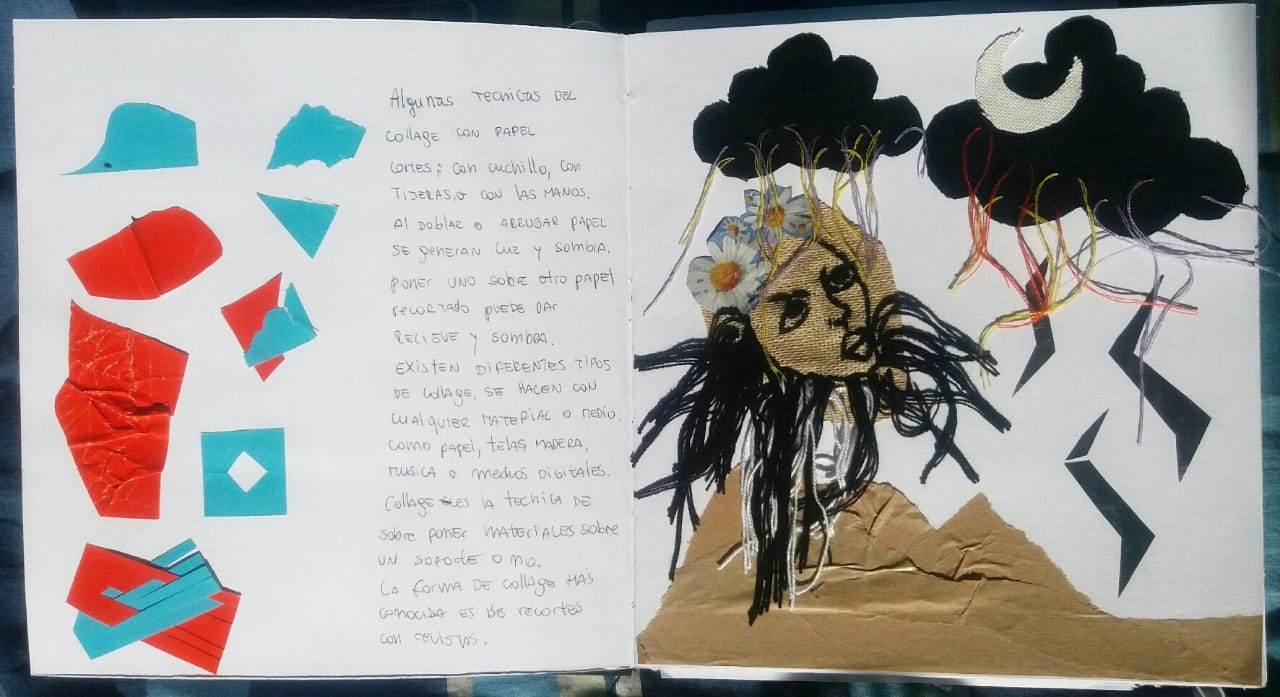 Algunas TECNICAS DEL
COLLAGE CON PAPEL
CORTES; CON cuchillo, CON
TIJERAS, O CON LAS MANOS.
Al DOBLAR O ARRUGAR PAPEL
SE GENERAN LUZ Y SOMBRA.
PONER UNO SOBRE OTRO PAPEL
RECORTADO PUEDE DAR
RELIEVE Y SOMBRA.
EXISTEN DIFERENTES TIPOS
DE COLLAGE, SE HACEN CON
CUALQUIER MATERIAL O MEDIO,
COMO PAPEL, TELAS, MADERA,
MUSICA O MEDIOS DIGITALES.
Collage es la TECNICA DE
sobre PONER MATERIALES SOBRE
UN SOPORTE O NO.
LA FORMA DE COLLAGE MAS
CONOCIDA ES DE RECORTES
CON REVISTAS.